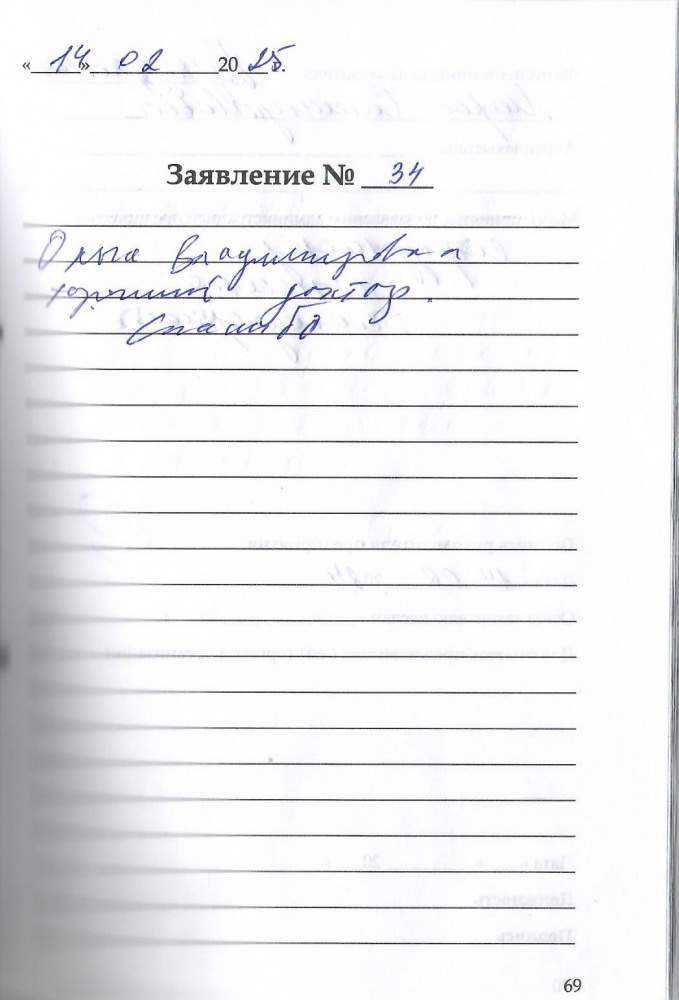 «14» 02 2025 г.
Заявление № 34
Ольга Владимировна
хороший доктор.
Спасибо
69